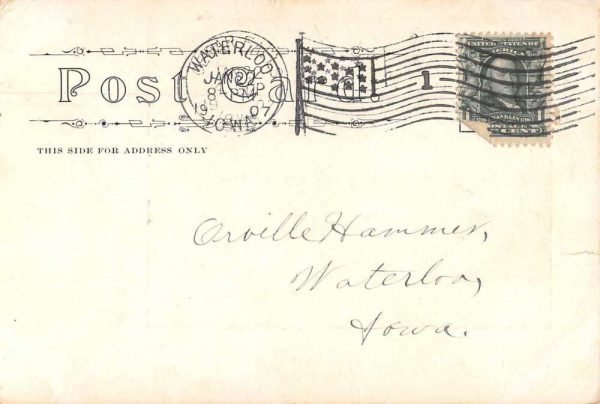 Post Card.
WATERLOO
JAN 22
8 PM
1907
IOWA
1
UNITED STATES OF
FRANKLIN
CENT
THIS SIDE FOR ADDRESS ONLY
Orville Hammer,
Waterloo,
Iowa.